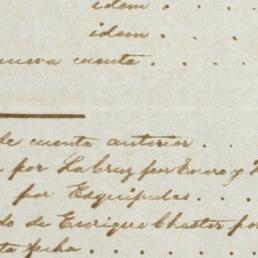 idem . . .
idem . .
nueva cuenta . . . .
de cuenta anterior . .
por La Cruz por Enero y
por Esquipulas . . .
do de Enrique Chester por
ta fecha . . . . . .